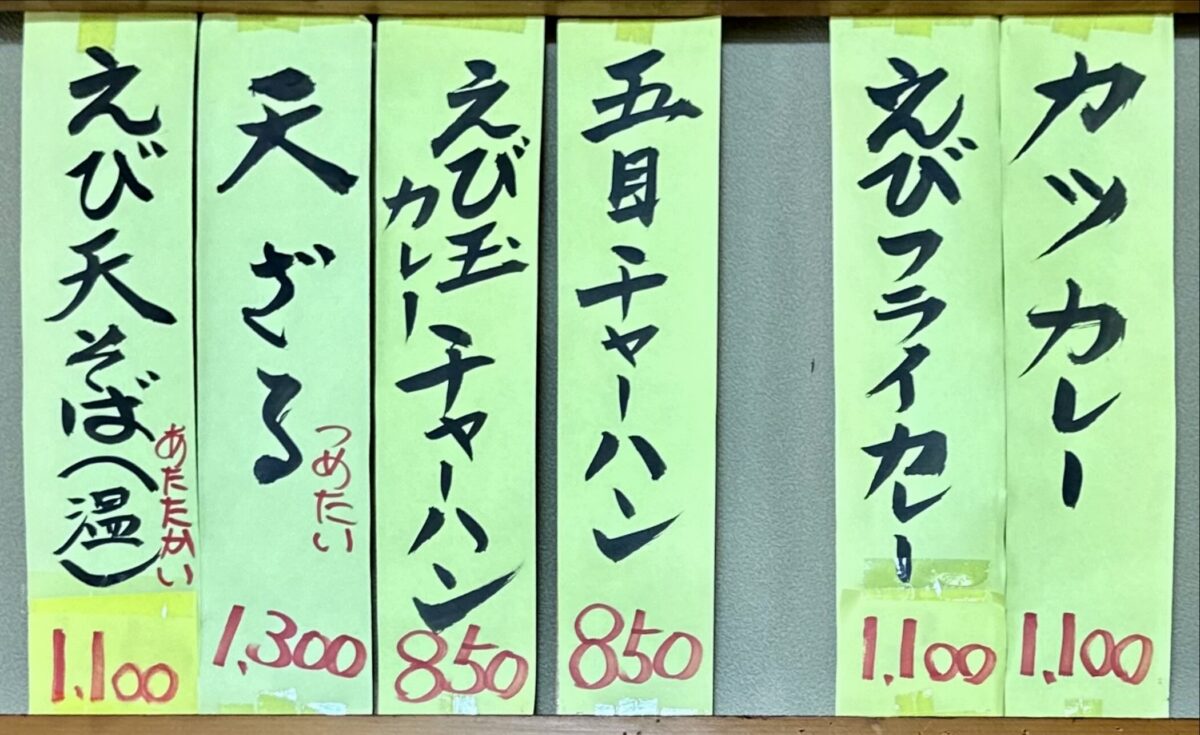 カツカレー
1,100
えびフライカレー
1,100
五目チャーハン
850
えび玉チャーハン
カレー
850
天ざる
つめたい
1,300
えび天そば(温)
あたたかい
1,100